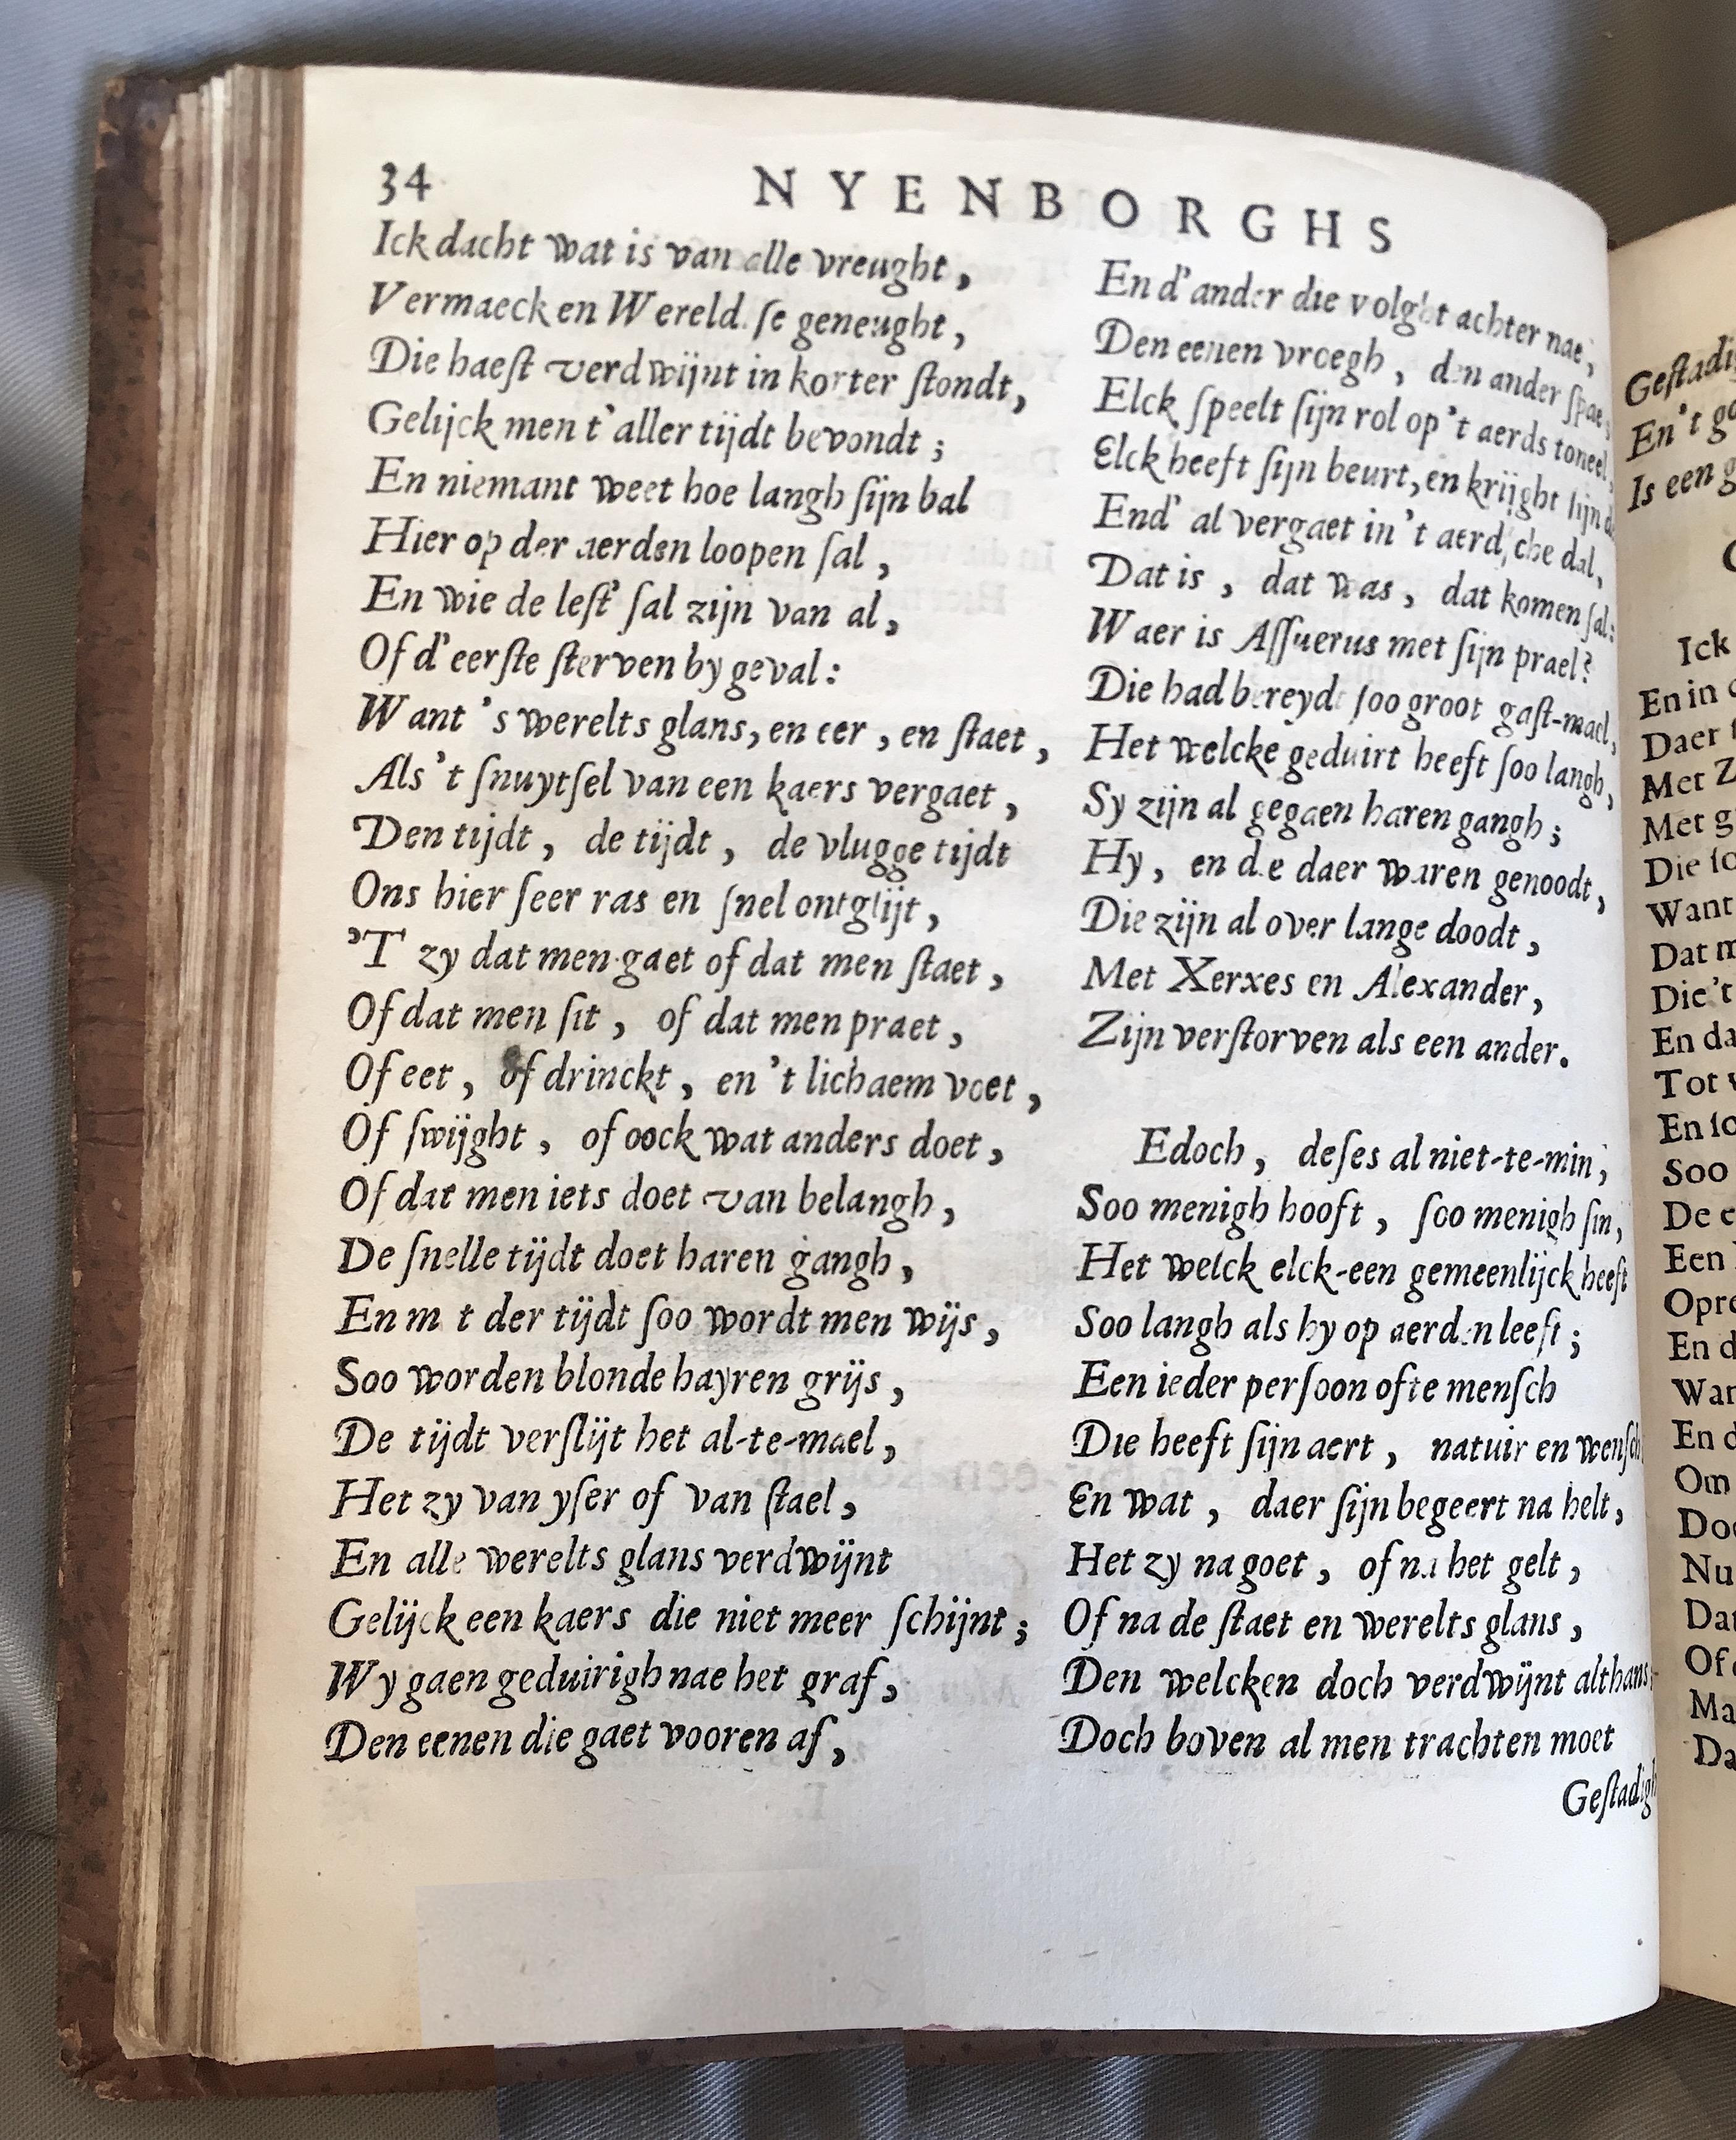 34 NYENBORGHS
Ick dacht wat is van alle vreught,
Vermaeck en Wereldſe geneught,
Die haeſt verdwijnt in korter ſtondt,
Gelijck men t'aller tijdt bevondt;
En niemant weet hoe langh ſijn bal
Hier op der aerden loopen ſal,
En wie de leſt' ſal zijn van al,
Of d'eerſte ſterven by geval:
Want 's werelts glans, en eer, en ſtaet,
Als 't ſnuytſel van een kaers vergaet,
Den tijdt, de tijdt, de vlugge tijdt
Ons hier ſeer ras en ſnel ontglijt,
'T zy dat men gaet of dat men ſtaet,
Of dat men ſit, of dat men praet,
Of eet, of drinckt, en 't lichaem voet,
Of ſwijght, of oock wat anders doet,
Of dat men iets doet van belangh,
De ſnelle tijdt doet haren gangh,
En m t der tijdt ſoo wordt men wijs,
Soo worden blonde hayren grijs,
De tijdt verſlijt het al-te-mael,
Het zy van yſer of van ſtael,
En alle werelts glans verdwijnt
Gelijck een kaers die niet meer ſchijnt;
Wy gaen geduirigh nae het graf,
Den eenen die gaet vooren af,
En d'ander die volght achter nae,
Den eenen vroegh, den ander ſpae,
Elck ſpeelt ſijn rol op 't aerds toneel,
Elck heeft ſijn beurt, en krijght ſijn
End' al vergaet in 't aerdſche dal,
Dat is, dat was, dat komen ſal:
Waer is Aſſuerus met ſijn prael?
Die had bereydt ſoo groot gaſt-mael,
Het welcke geduirt heeft ſoo langh,
Sy zijn al gegaen haren gangh;
Hy, en die daer waren genoodt,
Die zijn al over lange doodt,
Met Xerxes en Alexander,
Zijn verſtorven als een ander.
Edoch, deſes al niet-te-min,
Soo menigh hooft, ſoo menigh ſin,
Het welck elck-een gemeenlijck heeft
Soo langh als hy op aerden leeft;
Een ieder perſoon ofte menſch
Die heeft ſijn aert, natuir en wenſch
En wat, daer ſijn begeert na helt,
Het zy na goet, of na het gelt,
Of na de ſtaet en werelts glans,
Den welcken doch verdwijnt althans
Doch boven al men trachten moet
Geſtadigh
En 't
Is een
Ick
En in
Daer
Met
Met
Want
Dat
Die 't
En
Tot
Soo
Een